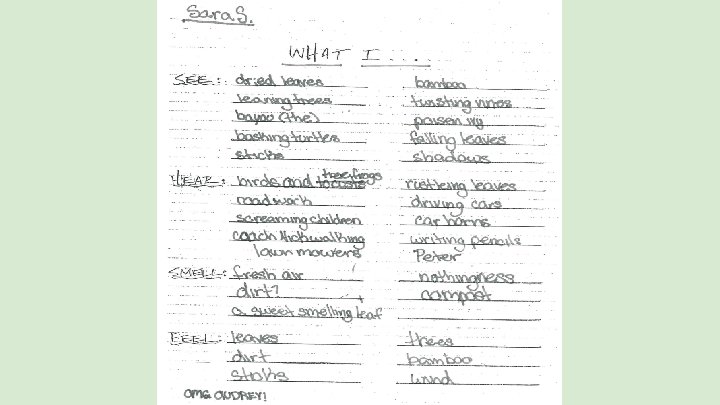 Sara S.
WHAT I....
SEE: dried leaves bamboo
leaning trees twisting vines
bayou (the) poisen ivy
basking turtles falling leaves
sticks shadows
HEAR: birds and locusts treefrogs rustleing leaves
roadwork driving cars
screaming children car horns
coach walking writing pencils
lawn mowers Peter
SMELL: fresh air nothingness
dirt? compost
a sweet smelling leaf
FEEL: leaves trees
dirt bamboo
sticks wind
OMG AUDREY!